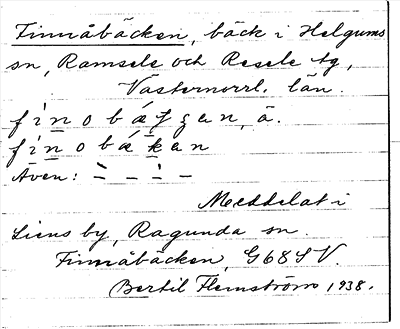 Finnåbäcken, bäck i Helgums
sn, Ramsele och Resele tg,
Västernorrl. län.
Även:
Meddelat i
Liens by, Ragunda sn.
Finnåbäcken, G68SV.
Bertil Flemström 1938.